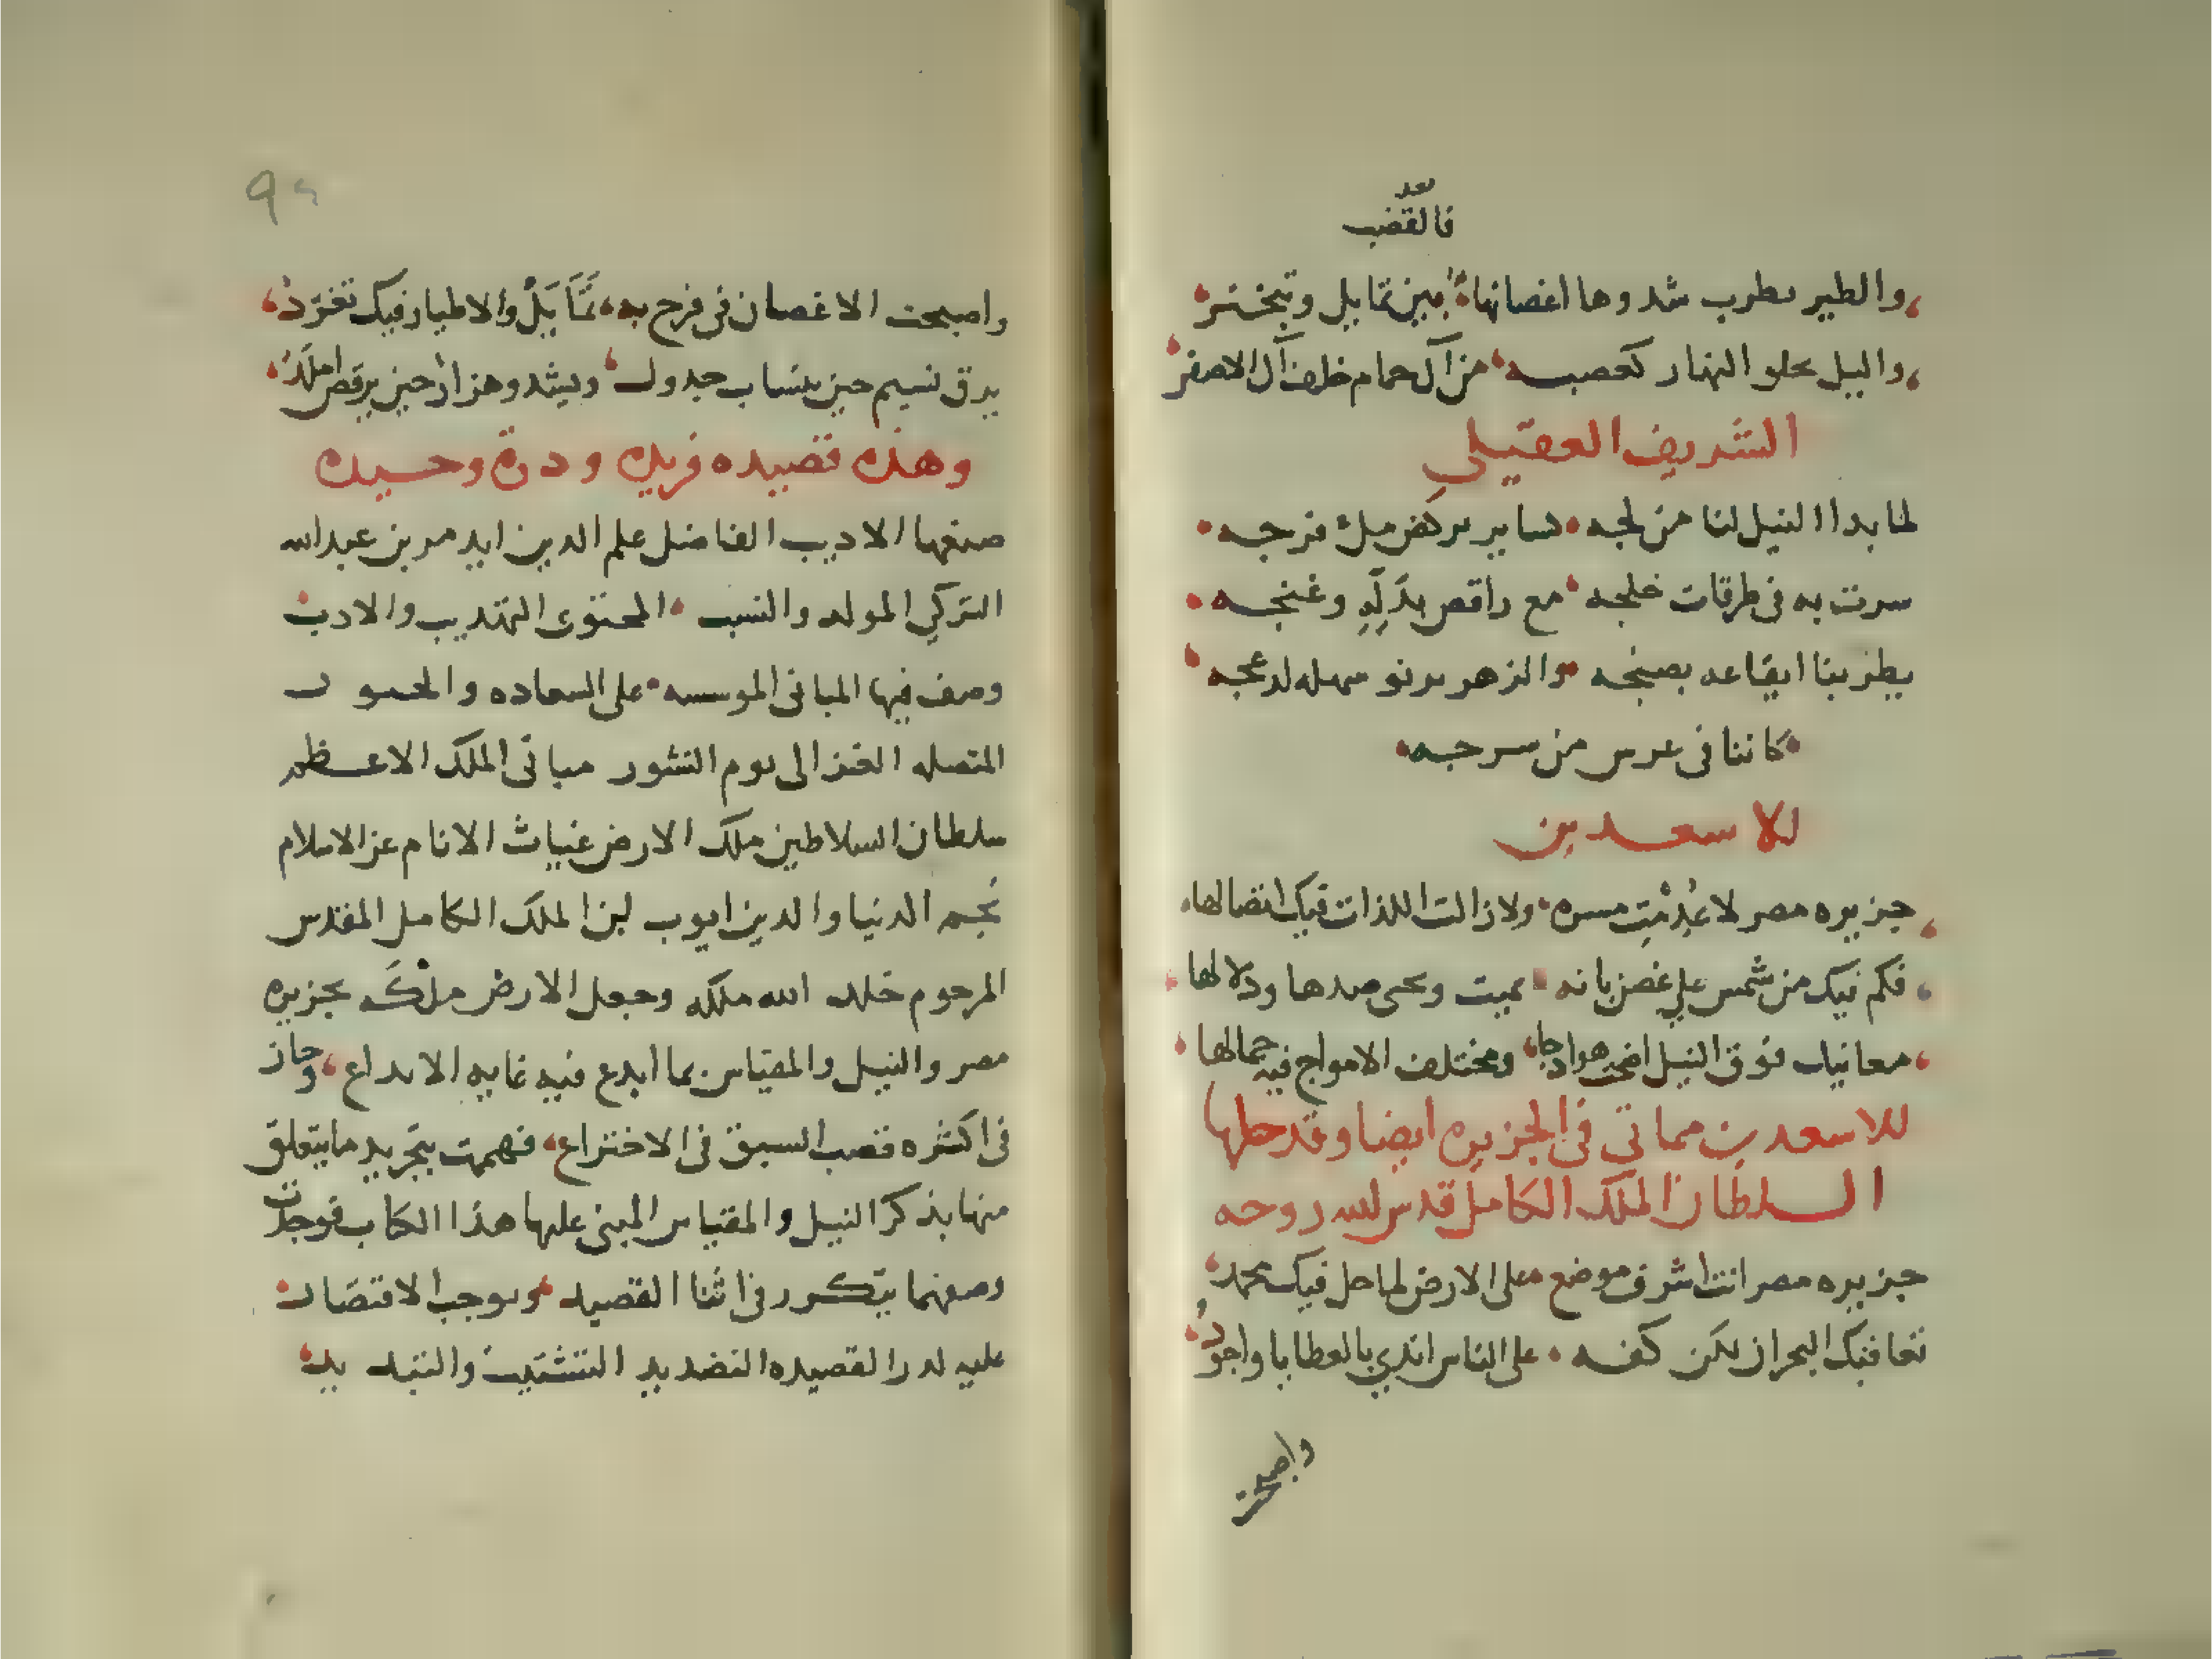 بعد
فالقضب
والطير يطرب شدوها اغصانها بين تمايل وتبختر
واليل يحلو النهار كعصبه من آل حمام خلف آل الاصفر
الشريف العقيلي
لما بدا النيل لنا من لجه ساير يركض مل فرجه
سرنت به في طرقات خلجه مع راقص بدله وغنجه
يطربنا ايقاعه بصنجه والزهر يرنو
كاننا في عرس من سرجه
للاسعد بن
جزيره مصر لا عدمت مسره ولا زالت اللذات فيك اتصالها
فكم فيك من شمس على غصن بانه يميت ويحى صدها ودلالها
معانيك فوق النيل اضحت هوادجا ومختلف الامواج فيه جمالها
للاسعد بن مماتي في الجزيره ايضا وقد حلها
السلطان الملك الكامل قدس الله روحه
جزيره مصر انت اشرف موضع على الارض لما حل فيك محمد
فيك البحران لكن كفه على الناس اندى بالعطايا واجود
واصبحت
واصبحت الاغصان في فرح به تمايل والاطيار فيك تغرد
يرق نسيم حين ينساب جدول ويشدو هزار حين يرقص املد
وهذه قصيده فريده ودرة وحيده
صنعها الاديب الفاضل علم الدين ايدمر بن عبد الله
التركي المولد والنسب المحتوى التهذيب والادب
وصف فيها المباني الموسسه على السعاده و
المتصله العز الى يوم النشور مباني الملك الاعظم
سلطان السلاطين ملك الارض غياث الانام عز الاسلام
نجم الدنيا والدين ايوب ابن الملك الكامل المقدس
المرحوم خلد الله ملكه وجعل الارض ملكه بجزيره
مصر والنيل والمقياس بما ابدع فيه غايه الابداع وحاز
في اكثره قصب السبق في الاختراع فهممت بتجريد ما يتعلق
منها بذكر النيل والمقياس المبني عليها هذا الكتاب فوجدت
وصفهما يتكرر في اثنا القصيد ويوجب الاقتصار
عليه لدر القصيده النضيد التشتيت والتبديد